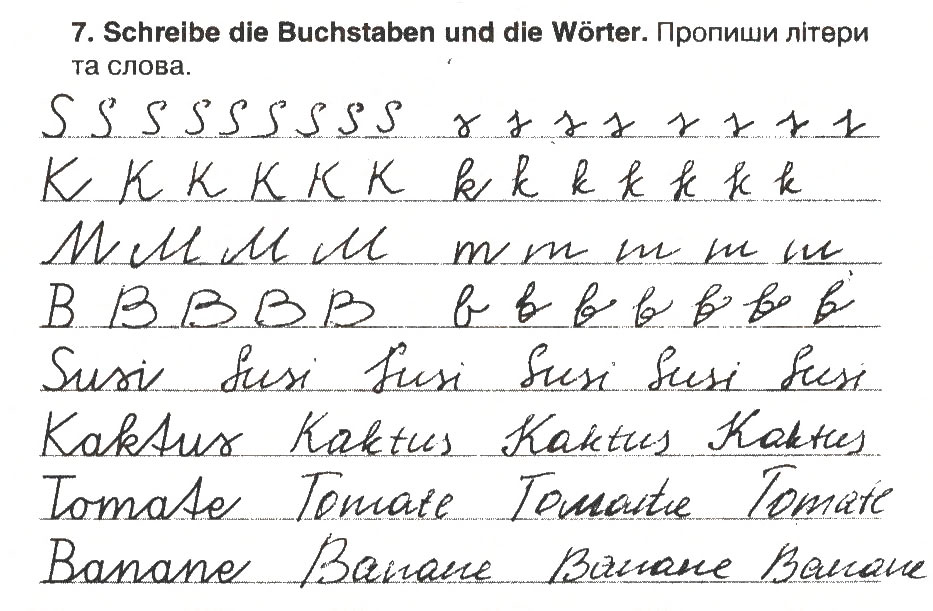 7. Schreibe die Buchstaben und die Wörter. Пропиши літери
та слова.
S S S S S S S S S s s s s s s s s
K K K K K K k k k k k k k
M M M M m m m m m
B B B B B b b b b b b b
Susi Susi Susi Susi Susi Susi
Kaktus Kaktus Kaktus Kaktus
Tomate Tomate Tomate Tomate
Banane Banane Banane Banane